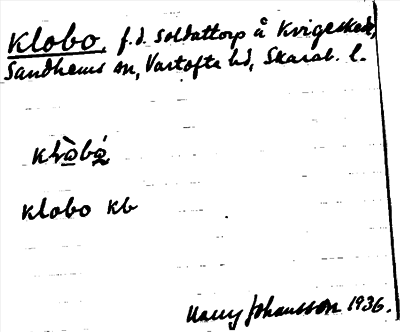 Klobo, f.d. soldattorp å Kvigeshed,
Sandhems sn, Vartofta hd, Skarab. l.
klobo kb
Harry Johansson 1936.